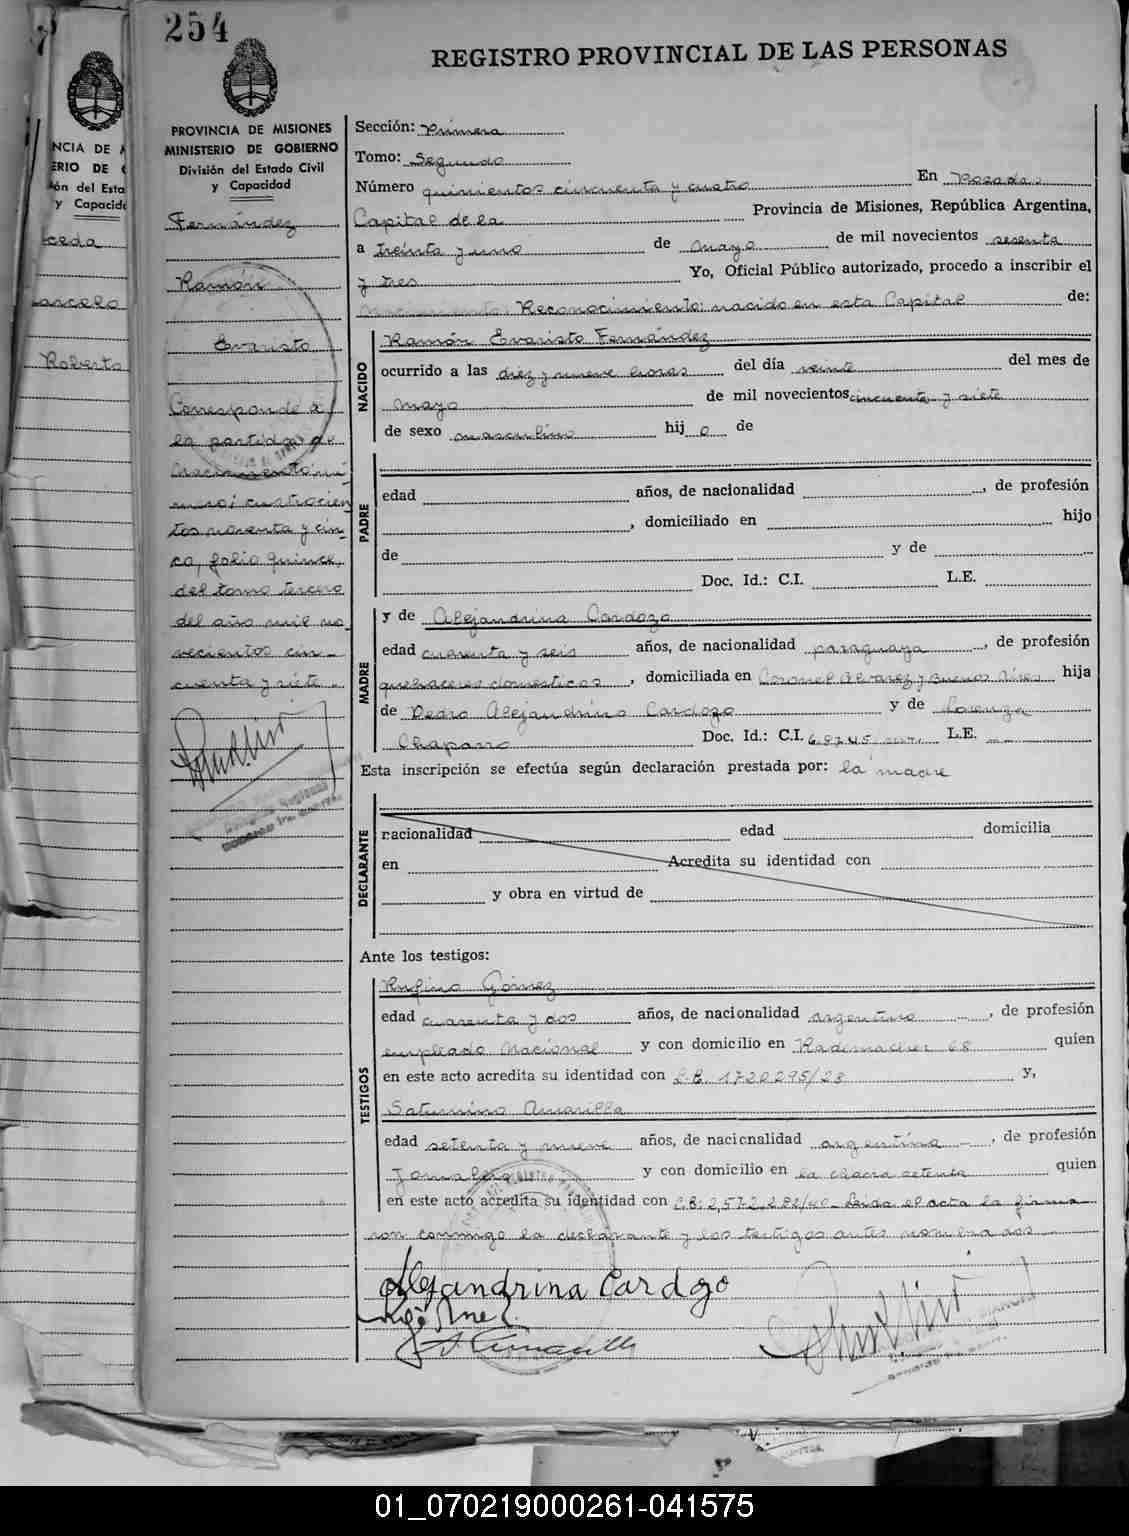 254
REGISTRO PROVINCIAL DE LAS PERSONAS
PROVINCIA DE MISIONES
MINISTERIO DE GOBIERNO
División del Estado Civil
y Capacidad
Fernández
Ramón
Evaristo
Corresponde a
la partida de
Nacimiento nú-
mero: cuatrocien
tos noventa y cin-
co, folio quince,
del tomo tercero
del año mil no-
vecientos cin-
cuenta y siete.-
Sección: Primera
Tomo: Segundo
Número quinientos cincuenta y cuatro En Posadas
Capital de la Provincia de Misiones, República Argentina,
a treinta y uno de mayo de mil novecientos sesenta
y tres Yo, Oficial Público autorizado, procedo a inscribir el
Reconocimiento: nacido en esta Capital de:
NACIDO
Ramón Evaristo Fernández
ocurrido a las diez y nueve horas del día veinte del mes de
mayo de mil novecientos cincuenta y siete
de sexo masculino hijo de
PADRE
edad años, de nacionalidad , de profesión
, domiciliado en hijo
de y de
Doc. Id.: C.I. L.E.
MADRE
y de Alejandrina Cardozo
edad cuarenta y seis años, de nacionalidad paraguaya, de profesión
quehaceres domésticos, domiciliada en Coronel Alvarez y Buenos Aires hija
de Pedro Alejandrino Cardozo y de Lorenza
Chaparro Doc. Id.: C.I. 68745 L.E. --
Esta inscripción se efectúa según declaración prestada por: la madre
DECLARANTE
nacionalidad edad domicilia
en Acredita su identidad con
y obra en virtud de
Ante los testigos:
TESTIGOS
Rufino Gómez
edad cuarenta y dos años, de nacionalidad argentino, de profesión
empleado Nacional y con domicilio en Rademacher 68 quien
en este acto acredita su identidad con 1720295/23 y,
Saturnino Amarilla
edad setenta y nueve años, de nacionalidad argentina -, de profesión
Jornalero y con domicilio en la chacra setenta quien
en este acto acredita su identidad con 2,572,282/40 - Leída el acta la firma
ron conmigo la declarante y los testigos antes nombrados
Alejandrina Cardozo
S. Amarilla
NCIA DE
ERIO DE
ón del Esta
y Capacid
Roberto
01_070219000261-041575